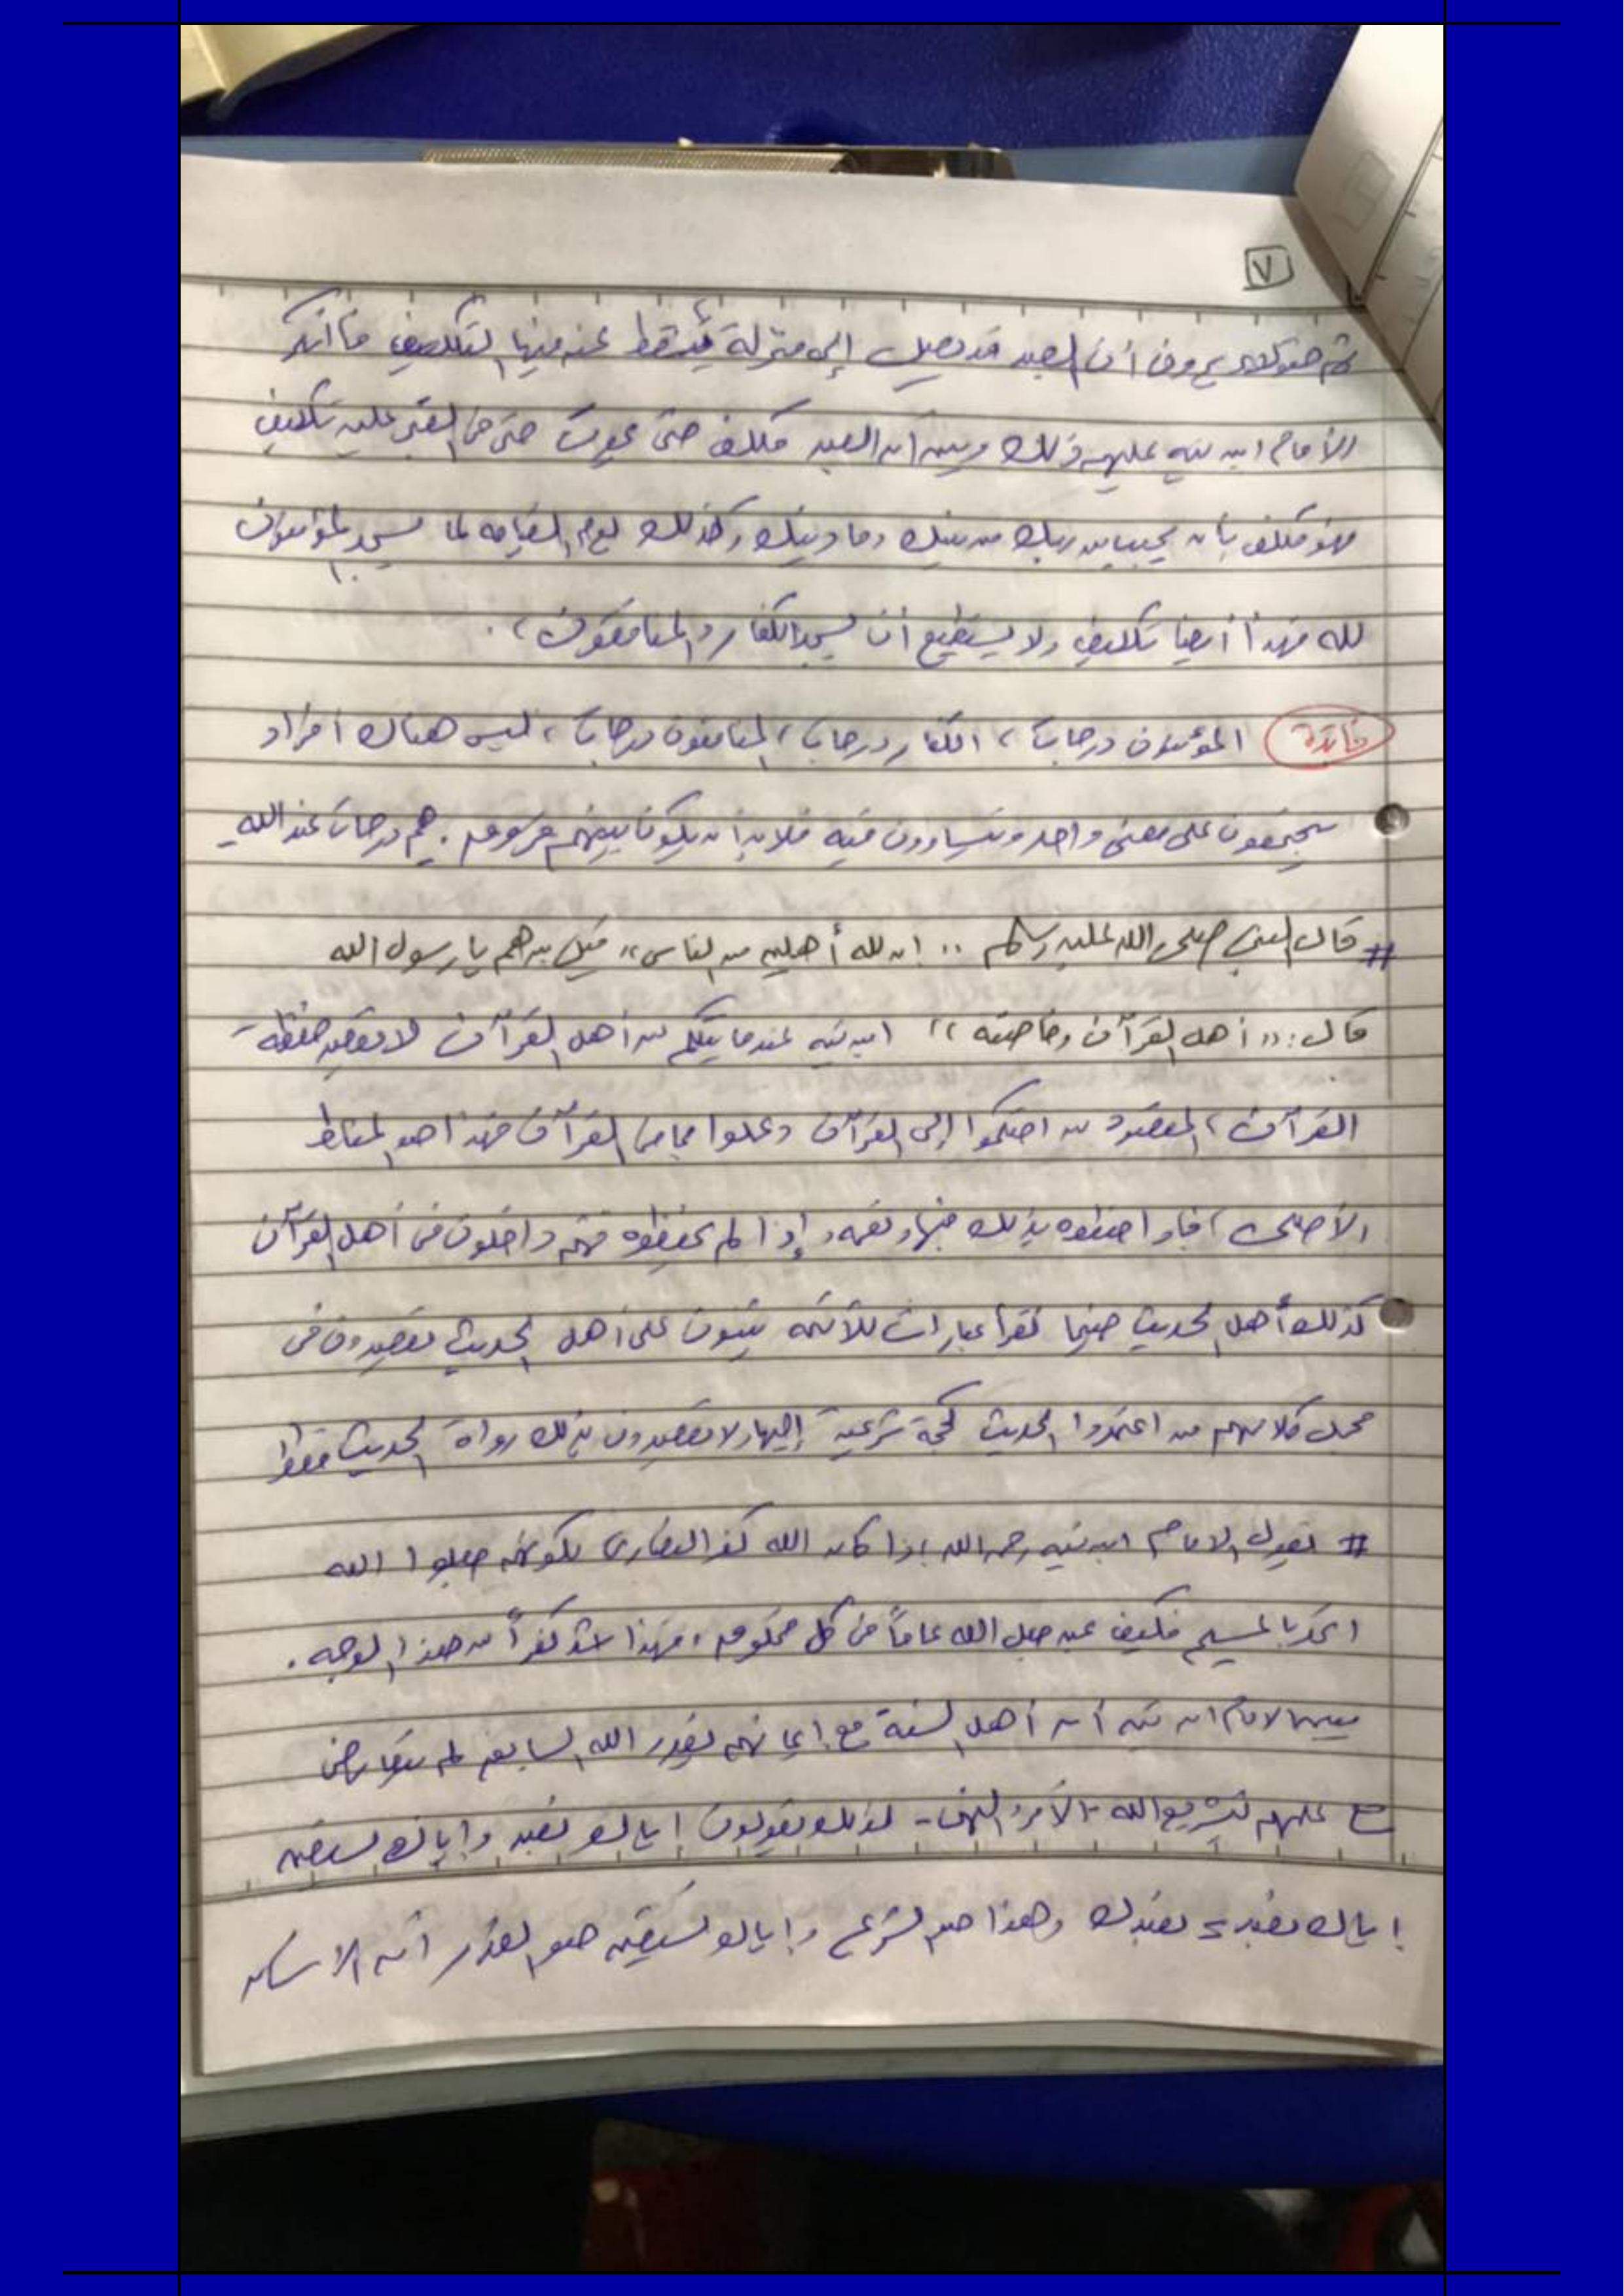 ٧
ثم هؤلاء يرون أن العبد قد يصل إلى منزلة يُسقط عنه فيها التكليف فأنكر
الأمام ابن تيميه عليهم ذلك وبين أن العبد مكلف حتى يموت حتى في القبر عليه تكليف
فهو مكلف بأن يجيب من ربك من نبيك وما دينك وكذلك يوم القيامه لما يسجد المؤمنون
لله فهذا أيضا تكليف ولا يستطيع أن يسجد الكفار والمنافقون،.
فائدة المؤمنون درجات، الكفار درجات، المنافقون درجات، ليس هناك أفراد
يجتمعون على معنى واحد ويتساوون فيه فلابد أن يكون بينهم فروق. هم درجات عند الله
# قال النبي صلى الله عليه وسلم ،، إن لله أهلين من الناس،، قيل من هم يا رسول الله
قال: ،، أهل القرآن وخاصته ،، ابن تيميه عندما يتكلم عن أهل القرآن لا يقصد حفظة
القرآن، المقصود من احتكموا إلى القرآن وعملوا بما في القرآن فهذا هو المناط
الأصلي، فإذا حفظوه بذلك فبها ونعمه وإذا لم يحفظوه فهم داخلون في أهل القرآن
كذلك أهل الحديث حينما نقرأ عبارات للأئمه يثنون على أهل الحديث يقصدون في
مجمل كلامهم من اعتمدوا الحديث كحجة شرعية إليها ولا يقصدون بذلك رواة الحديث فقط
# يقول الامام ابن تيميه رحمه الله إذا كان الله كفر النصارى لكونهم جعلوا الله
اتحد بالمسيح فكيف بمن جعل الله عاماً في كل مخلوق، فهذا أشد كفراً من هذا الوجه.
يبين الامام ابن تيميه أن أهل السنة مع إيمانهم بقدر الله السابق لم يتعارض
مع علمهم بتشريع الله - الأمر والنهي - لذلك يقولون إياك نعبد وإياك نستعين
إياك نعبد = نعبدك وهذا هو الشرع وإياك نستعين هو القدر أن الإنسان